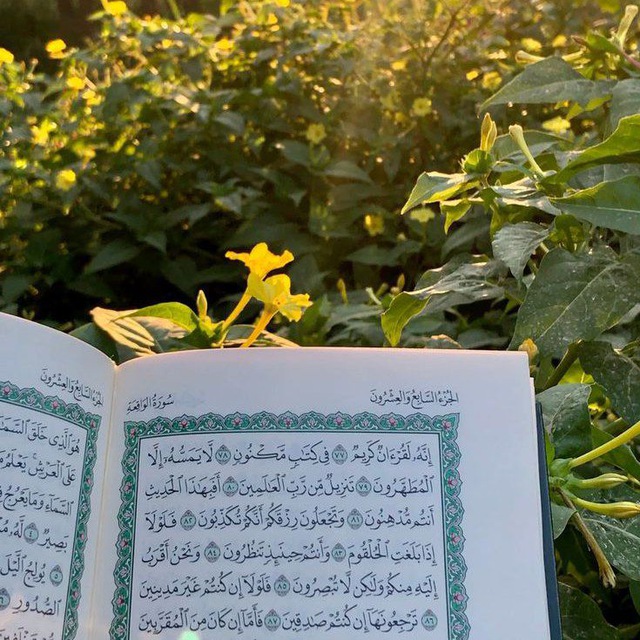 الجُزْءُ السَّابِعُ وَالعِشْرُونَ
سُورَةُ الوَاقِعَةِ
إِنَّهُۥ لَقُرْءَانٌ كَرِيمٌ ٧٧ فِى كِتَٰبٍ مَّكْنُونٍ ٧٨ لَّا يَمَسُّهُۥٓ إِلَّا
ٱلْمُطَهَّرُونَ ٧٩ تَنزِيلٌ مِّن رَّبِّ ٱلْعَٰلَمِينَ ٨٠ أَفَبِهَٰذَا ٱلْحَدِيثِ
أَنتُم مُّدْهِنُونَ ٨١ وَتَجْعَلُونَ رِزْقَكُمْ أَنَّكُمْ تُكَذِّبُونَ ٨٢ فَلَوْلَآ
إِذَا بَلَغَتِ ٱلْحُلْقُومَ ٨٣ وَأَنتُمْ حِينَئِذٍ تَنظُرُونَ ٨٤ وَنَحْنُ أَقْرَبُ
إِلَيْهِ مِنكُمْ وَلَٰكِن لَّا تُبْصِرُونَ ٨٥ فَلَوْلَآ إِن كُنتُمْ غَيْرَ مَدِينِينَ
٨٦ تَرْجِعُونَهَآ إِن كُنتُمْ صَٰدِقِينَ ٨٧ فَأَمَّآ إِن كَانَ مِنَ ٱلْمُقَرَّبِينَ
الجُزْءُ السَّابِعُ وَالعِشْرُونَ
هُوَ ٱلَّذِى خَلَقَ ٱلسَّمَٰ
عَلَى ٱلْعَرْشِ يَعْلَمُ
ٱلسَّمَآءِ وَمَا يَعْرُجُ فِ
بَصِيرٌ ٤ لَّهُۥ مُ
٥ يُولِجُ ٱلَّيْلَ
ٱلصُّدُورِ ٦